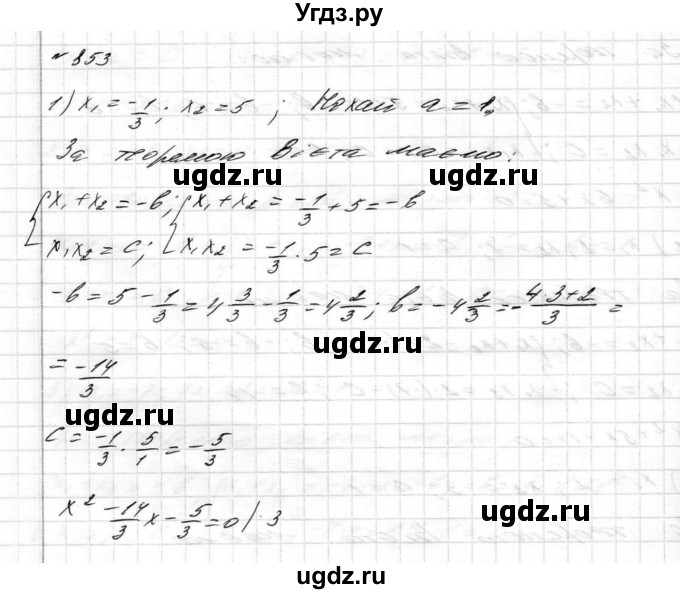 Угдз.ру
№ 853
1) x₁ = -1/3; x₂ = 5; Нехай a = 1.
За теоремою Вієта маємо:
ugdz.ru ugdz.ru
{ x₁ + x₂ = -b; { x₁ + x₂ = -1/3 + 5 = -b
x₁x₂ = c; x₁x₂ = -1/3 · 5 = c
-b = 5 - 1/3 = 4 3/3 - 1/3 = 4 2/3; b = -4 2/3 = -(4·3+2)/3 =
ugdz.ru ugdz.ru
= -14/3
ugdz.ru
c = -1/3 · 5/1 = -5/3
x² - 14/3 x - 5/3 = 0 |·3
ugdz.ru
ugdz.ru